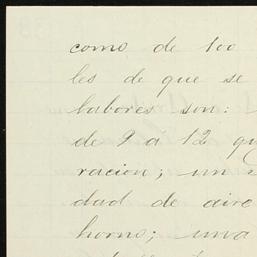 como de 100
les de que se
labores son:
de 9 a 12 qu
racion; un
dad de aire
horno; una